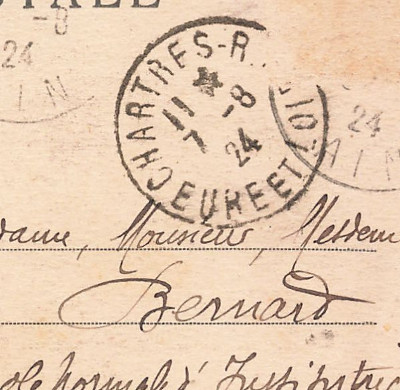 TALE
-8
24
AIN
CHARTRES-R.
* 11 -8
7 24
EURE ET LOIR
24
AIN
dame, Monsieur, Messdem
Bernard
ole normale d' Institutric